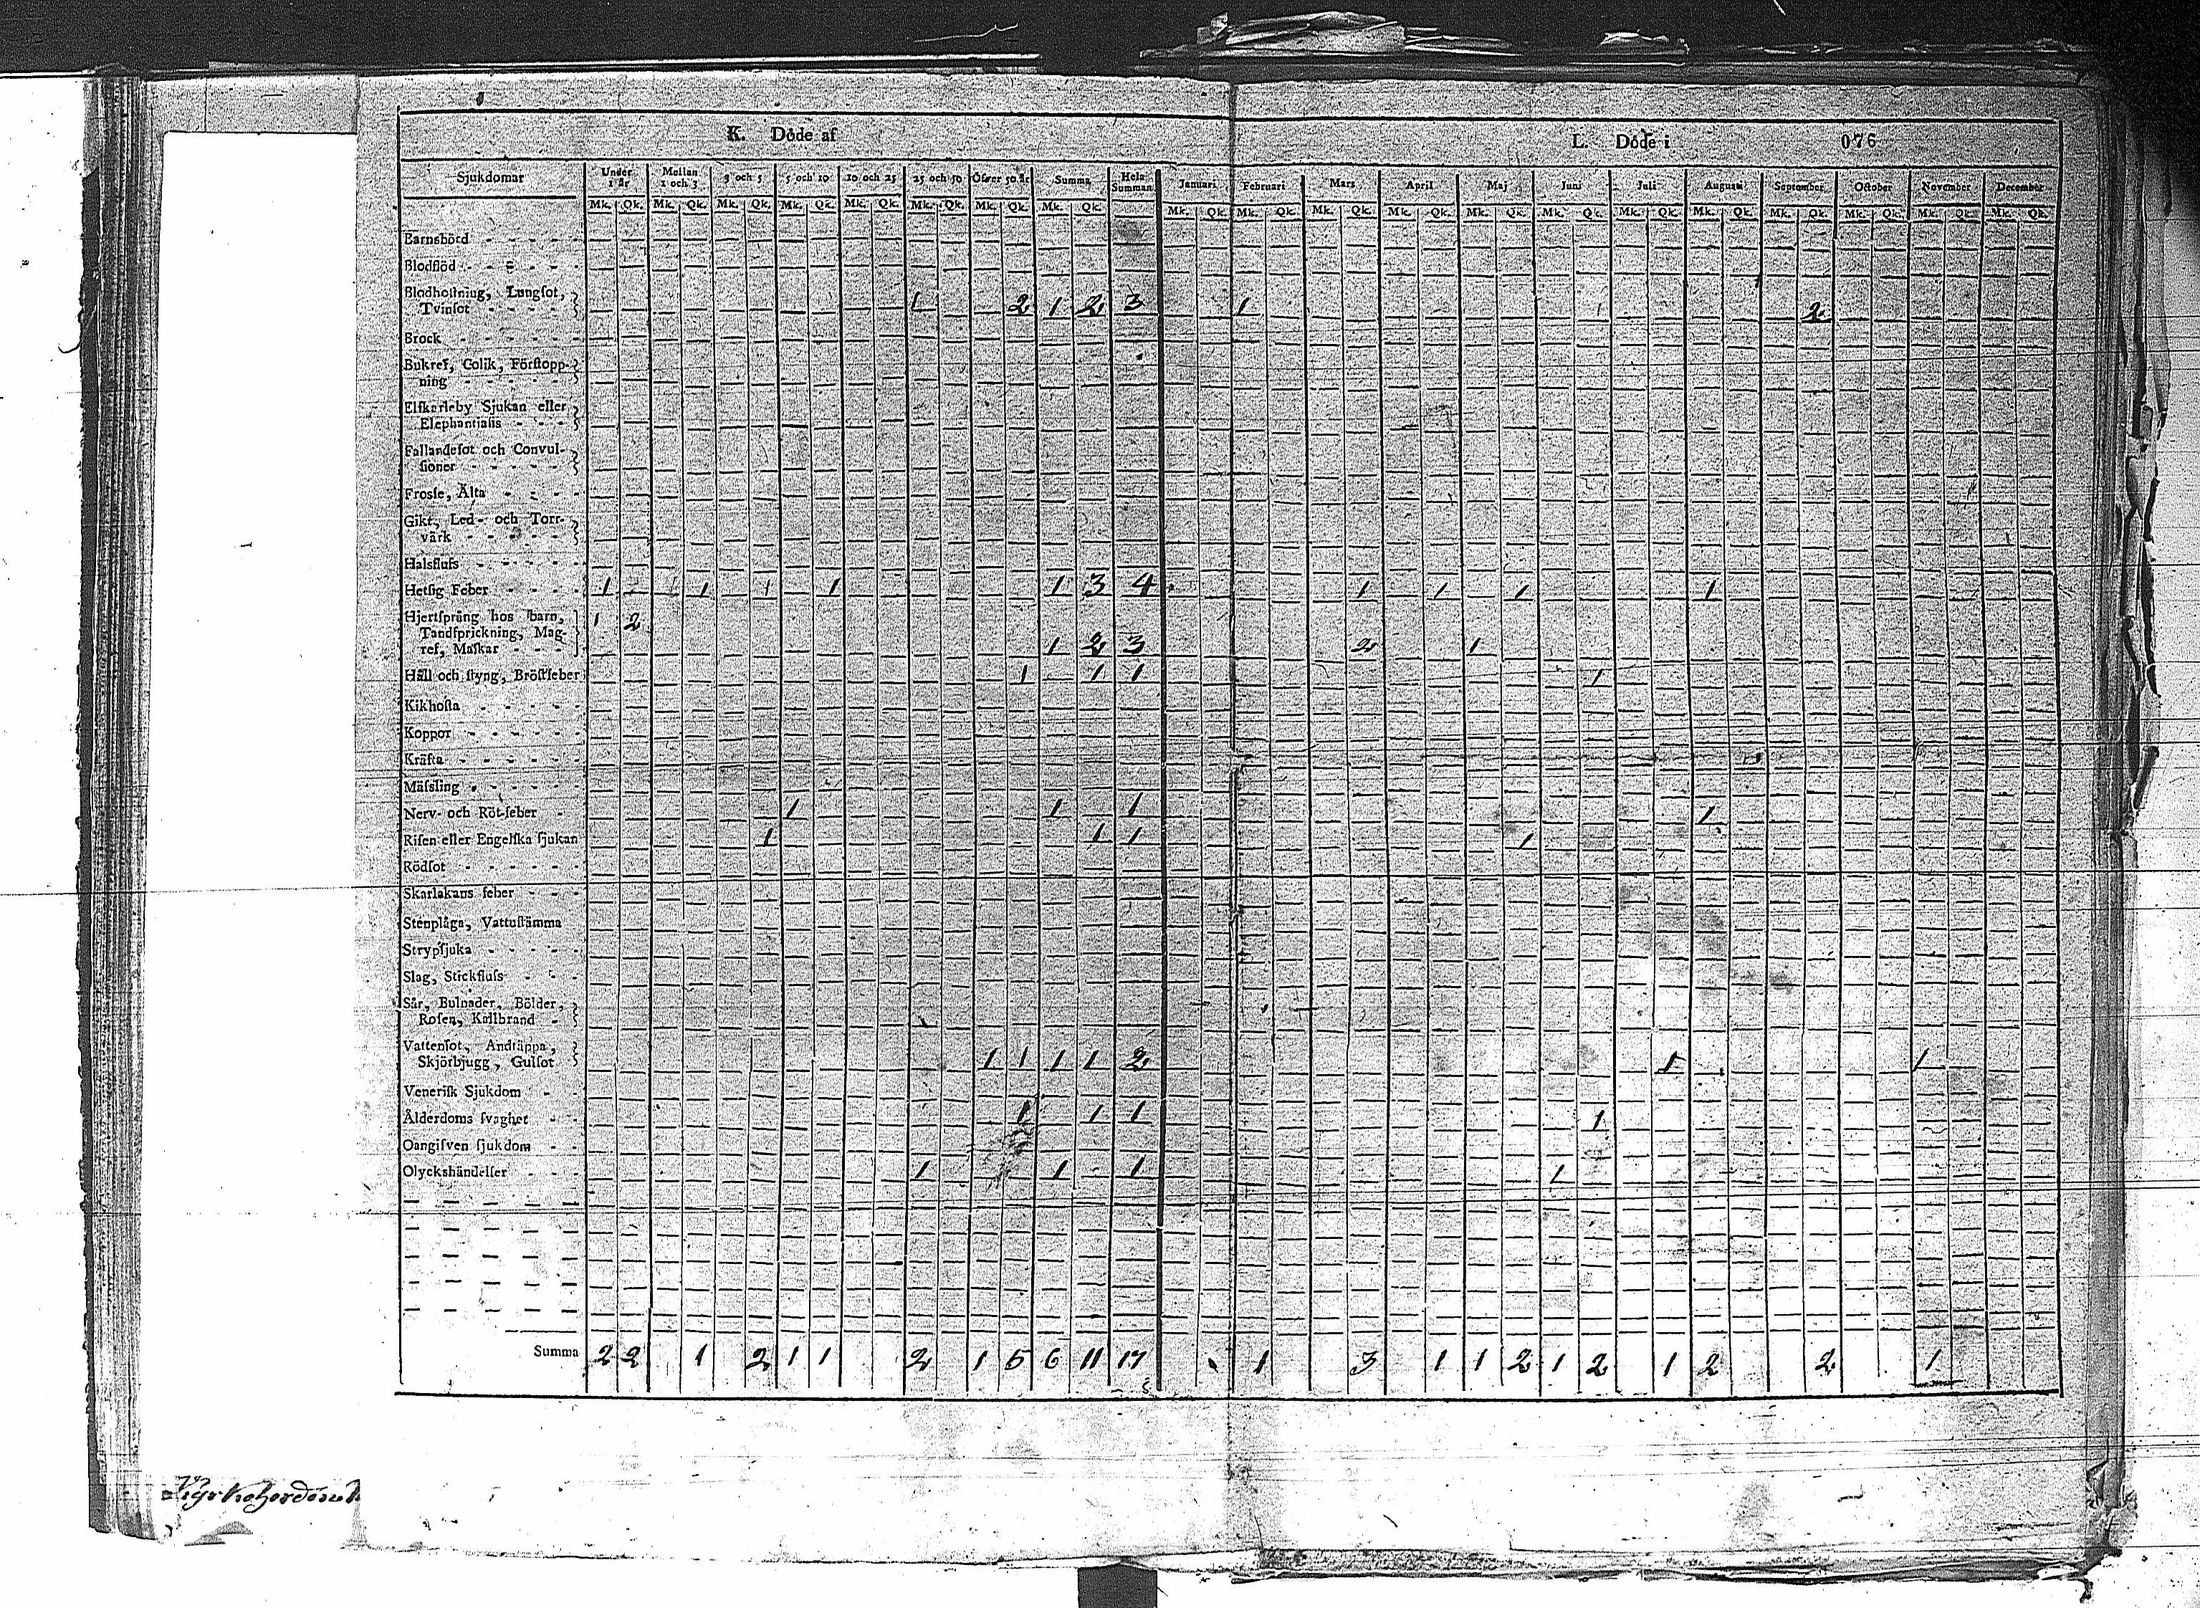 K. Döde af
L. Döde i
076
Sjukdomar Under 1 år Mellan 1 och 3 3 och 5 5 och 10 10 och 25 25 och 50 Öfver 50 år Summa Hela Summan Januari Februari Mars April Maj Juni Juli Augusti September October November December
Mk. Qk. Mk. Qk. Mk. Qk. Mk. Qk. Mk. Qk. Mk. Qk. Mk. Qk. Mk. Qk. Mk. Qk. Mk. Qk. Mk. Qk. Mk. Qk. Mk. Qk. Mk. Qk. Mk. Qk. Mk. Qk. Mk. Qk. Mk. Qk. Mk. Qk. Mk. Qk.
Barnsbörd
Blodflöd
Blodhostning, Lungsot,
Tvinsot 1 2 1 2 3 1 2
Brock
Bukref, Colik, Förstopp-
ning
Elfkarleby Sjukan eller
Elephantiasis
Fallandesot och Convul-
sioner
Frosse, Älta
Gikt, Led- och Torr-
värk
Halsfluss
Hetsig Feber 1 1 1 1 1 3 4 1 1 1 1
Hjertsprång hos barn, 1 2
Tandsprickning, Mag-
ref, Maskar 1 2 3 2 1
Håll och styng, Bröstfeber 1 1 1 1
Kikhosta
Koppor
Kräfta
Mässling
Nerv- och Röt-feber 1 1 1 1
Risen eller Engelska sjukan 1 1 1 1
Rödsot
Skarlakans feber
Stenplåga, Vattustämma
Strypsjuka
Slag, Stickfluss
Sår, Bulnader, Bölder,
Rosen, Kallbrand
Vattensot, Andtäppa,
Skjörbjugg, Gulsot 1 1 1 1 2 1 1
Venerisk Sjukdom
Ålderdoms svaghet 1 1 1 1
Oangifven sjukdom
Olyckshändelser 1 1 1 1
Summa 2 2 1 2 1 1 2 1 5 6 11 17 1 3 1 1 2 1 2 1 2 2 1